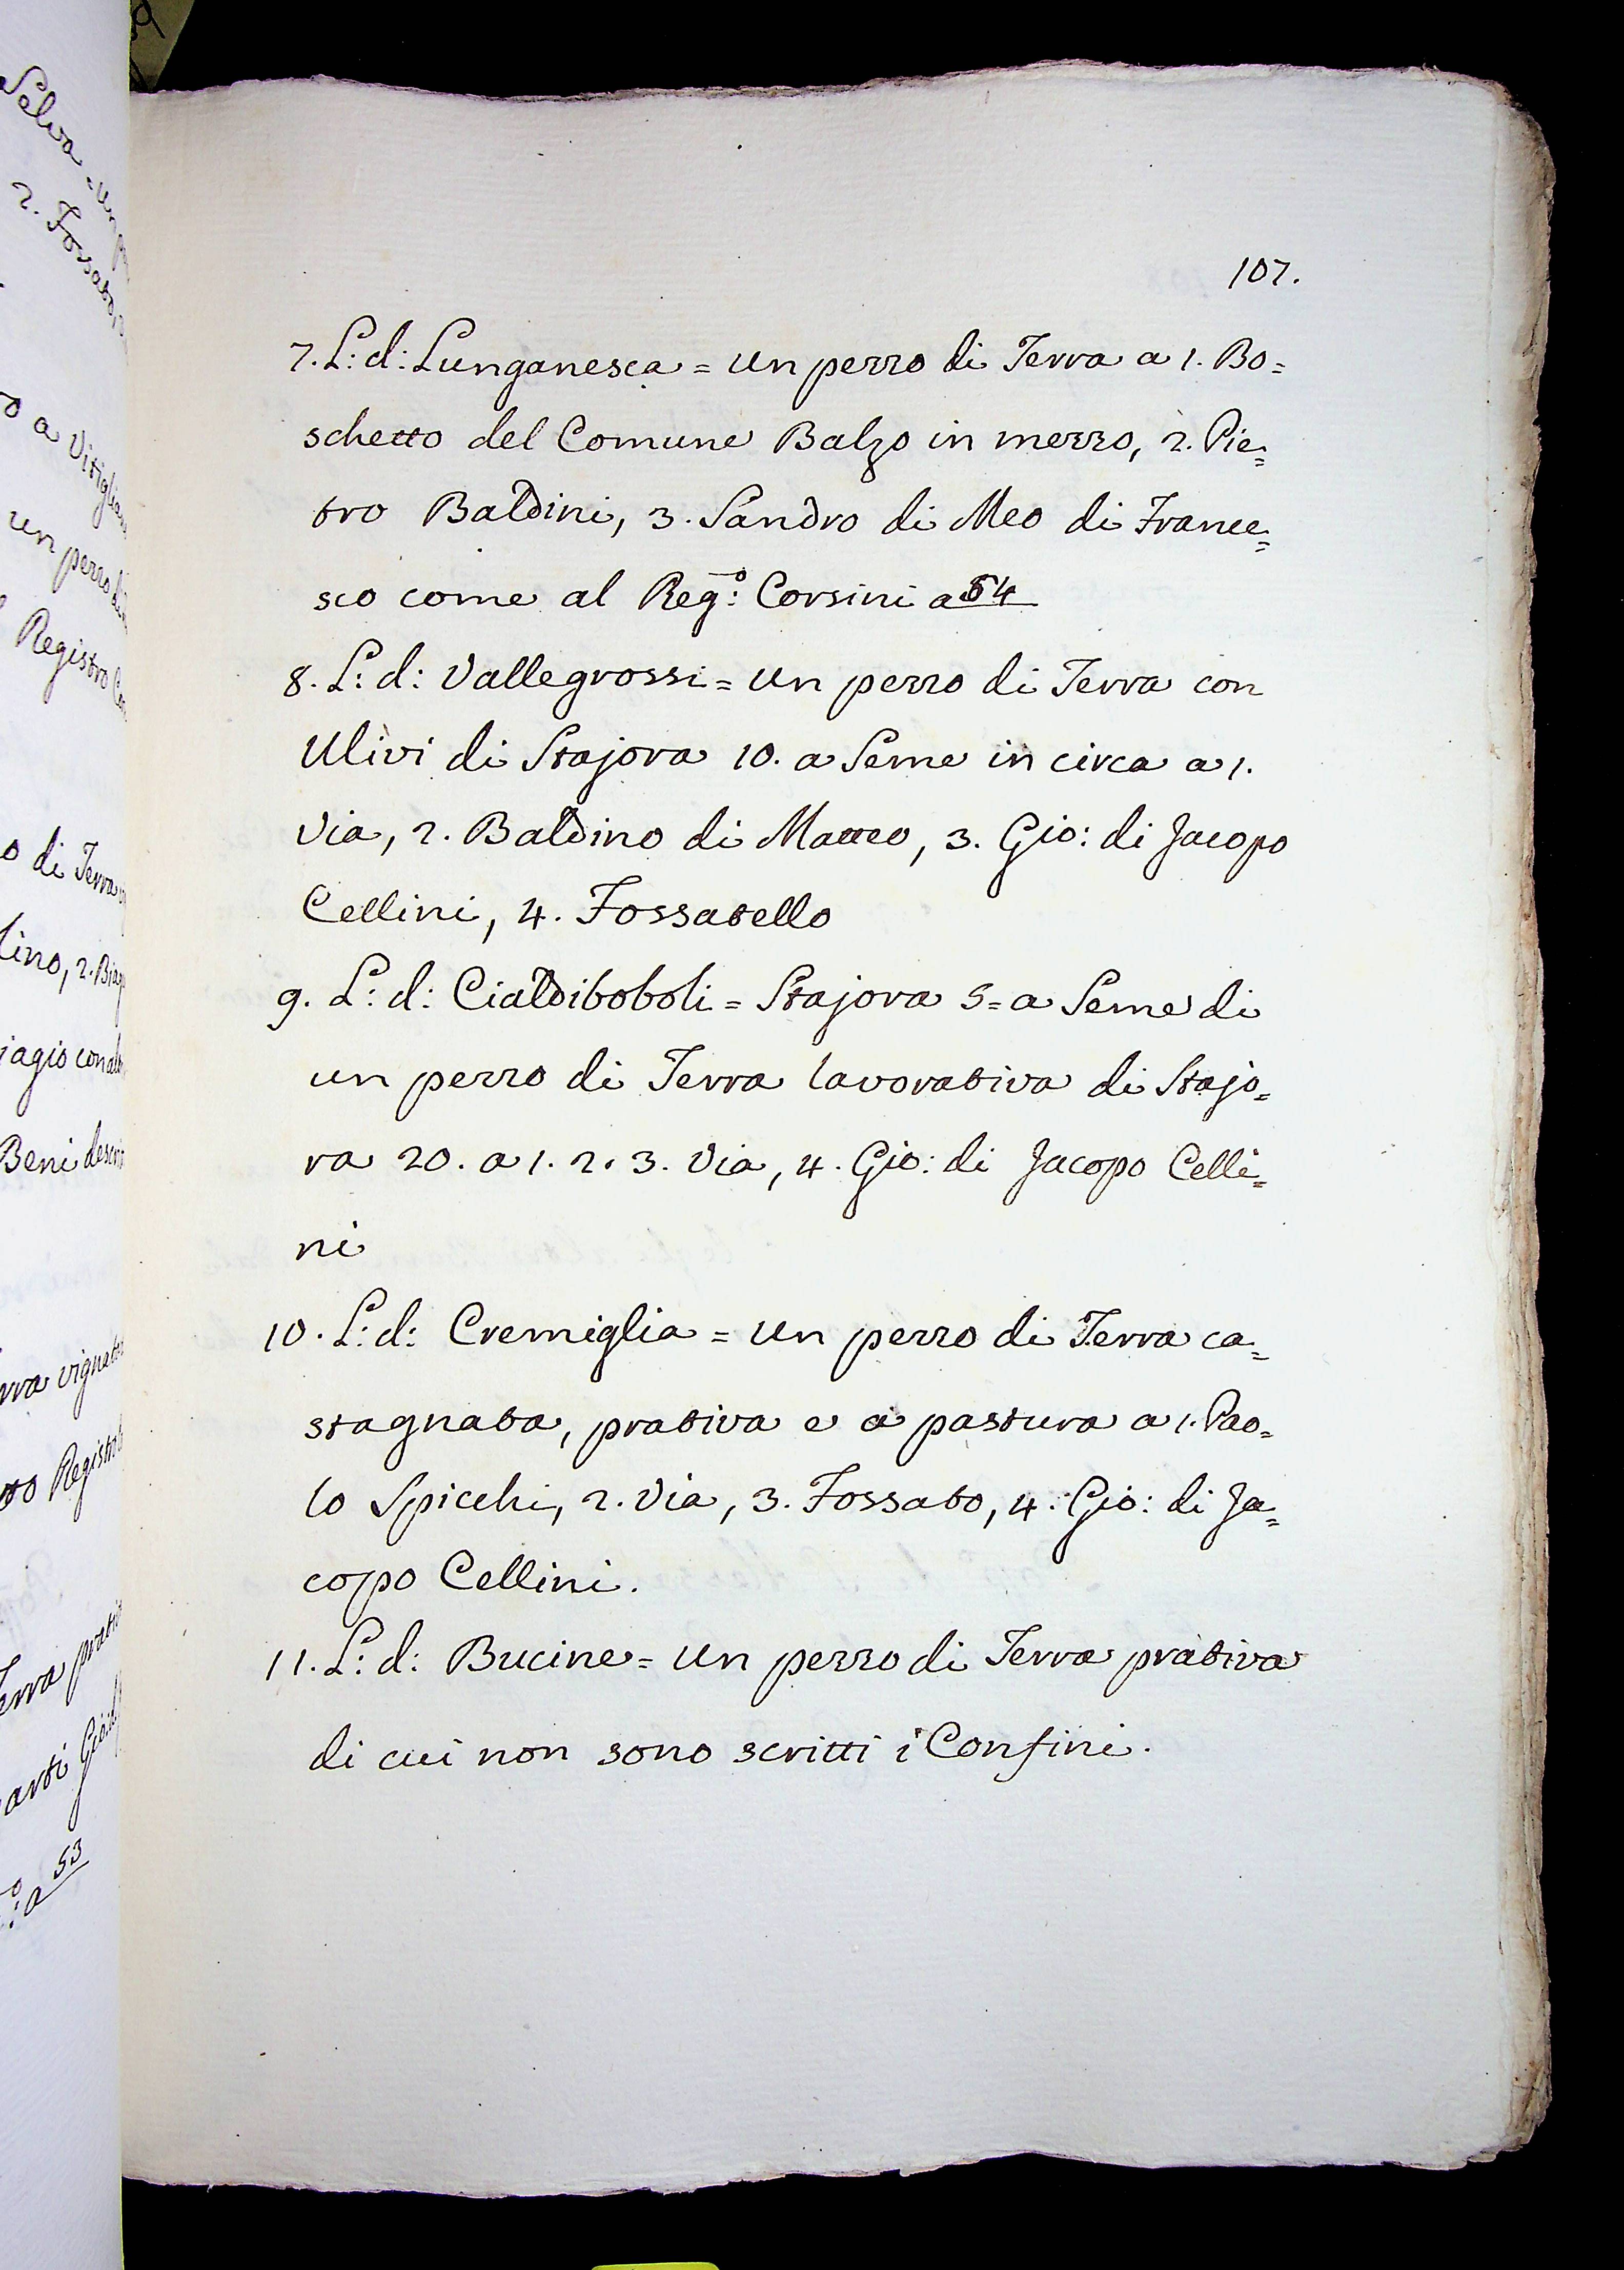 107.
7. L: d: Lunganesca = un pezzo di Terra a 1. Bo=
schetto del Comune Balzo in mezzo, 2. Pie=
tro Baldini, 3. Sandro di Meo di France=
sco come al Reg:º Corsini a 54
8. L: d: Vallegrossi = un pezzo di Terra con
Ulivi di Stajora 10. a Seme in circa a 1.
Via, 2. Baldino di Matteo, 3. Gio: di Jacopo
Cellini, 4. Fossatello
9. L: d: Cialdiboboli = Stajora 5 = a Seme di
un pezzo di Terra lavorativa di Stajo=
ra 20. a 1. 2. 3. Via, 4. Gio: di Jacopo Celli=
ni
10. L: d: Cremiglia = un pezzo di Terra ca=
stagnata, prativa e a pastura a 1. Pao=
lo Spicchi, 2. Via, 3. Fossato, 4. Gio: di Ja=
copo Cellini.
11. L: d: Bucine = un pezzo di Terra prativa
di cui non sono scritti i Confini.
Selva = un
2. Fossato
a Vitiglian
un pezzo di
Registro
di Terra
lino, 2. Biag
Beni descri
vignata
Registro
Terra prati
53